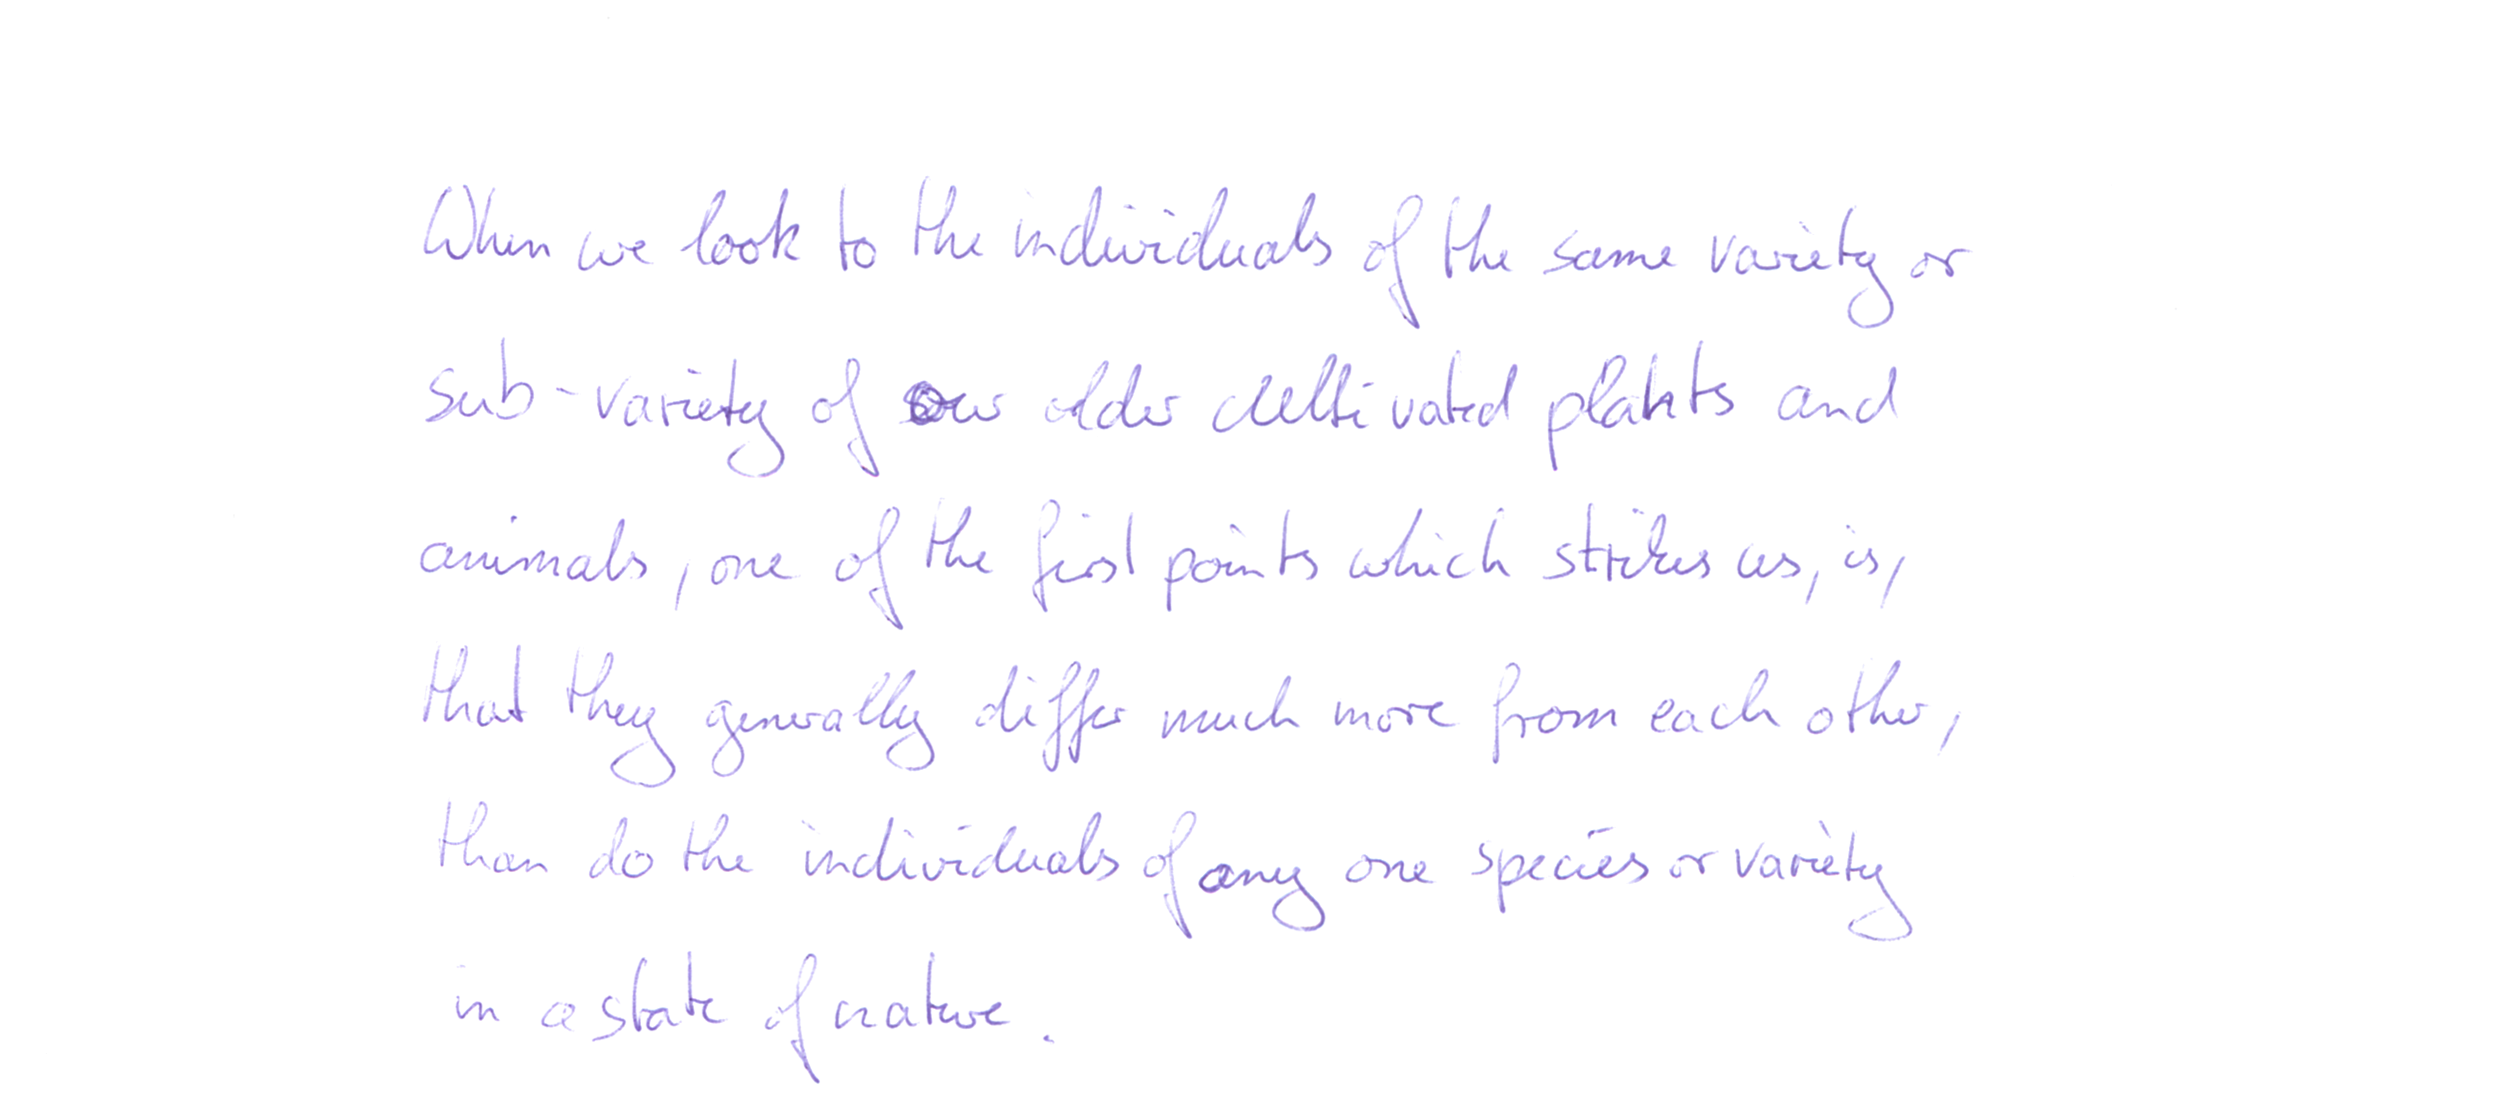 When we look to the individuals of the same variety or
sub-variety of our older cultivated plants and
animals, one of the first points which strikes us, is,
that they generally differ much more from each other,
than do the individuals of any one species or variety
in a state of nature.